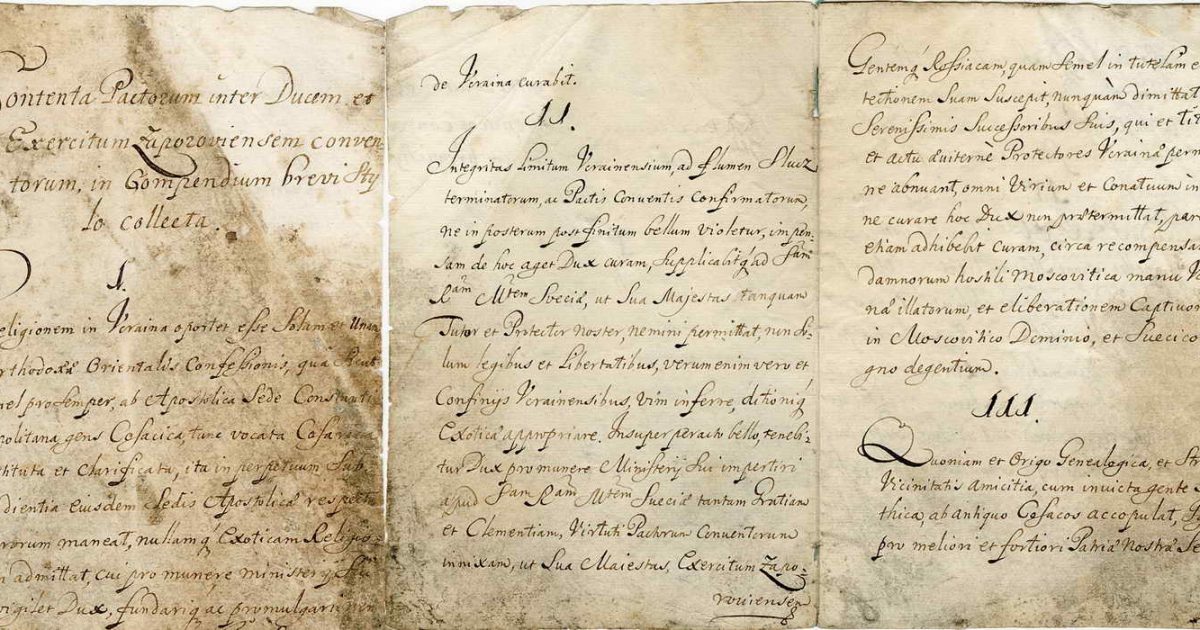 Contenta Pactorum inter Ducem et
Exercitum Zaporoviensem conven
torum, in Compendium brevi Sty
lo collecta.
I.
Religionem in Ucraina oportet esse Solam et Unam
Orthodoxæ Orientalis Confessionis, qua
mel pro semper, ab Apostolica Sede Constanti
politana, gens Cosacica, tunc vocata Cosarica
et Clarificata, ita in perpetuum Sub
dientia Eiusdem Sedis Apostolicæ respectu
maneat, nullamq Exoticam Religio
admittat, cui pro munere ministerij Sui
vigilet Dux, fundariq ac promulgari
de Ucraina curabit.
II.
Integritas limitum Ucrainensium, ad flumen Slucz
terminatorum, ac Pactis Conventis Confirmatorum,
ne in posterum post finitum bellum violetur, impen-
sam de hoc aget Dux curam, Supplicabitq ad Sam
Ram Mtem Sveciæ, ut Sua Majestas tanquam
Tutor et Protector noster, nemini permittat, non so-
lum legibus et Libertatibus, verum enim vero et
Confinijs Ucrainensibus, vim inferre, ditioniq
Exoticæ appropriare. Insuper peracto bello, tenebi-
tur Dux pro munere Ministerij Sui impertiri
apud Sam Ram Mtem Sveciæ tantam Gratiam
et Clementiam, Virtuti Pactorum Conventorum
innixam, ut Sua Maiestas, Exercitum Zapo-
roviensem
Gentemq Rossiacam, quam Semel in tutelam e
tectionem Suam Suscepit, nunquàm dimittat
Serenissimis Successoribus Suis, qui et tit
et actu æviternè Protectores Ucrainæ perm
ne abnuant, omni Virium et Conatuum in
ne curare hoc Dux non prætermittat, par
etiam adhibebit Curam, circa recompensa
damnorum hostili Moscovitica manu V
næ illatorum, et eliberationem Captivor
in Moscovitico Dominio, et Suecico
gno degentium.
III.
Quoniam et Origo Genealogica, et St
Vicinitatis Amicitia, cum invicta gente
thica, ab antiquo Cosacos accopulat,
pro meliori et fortiori Patriæ Nostræ Se